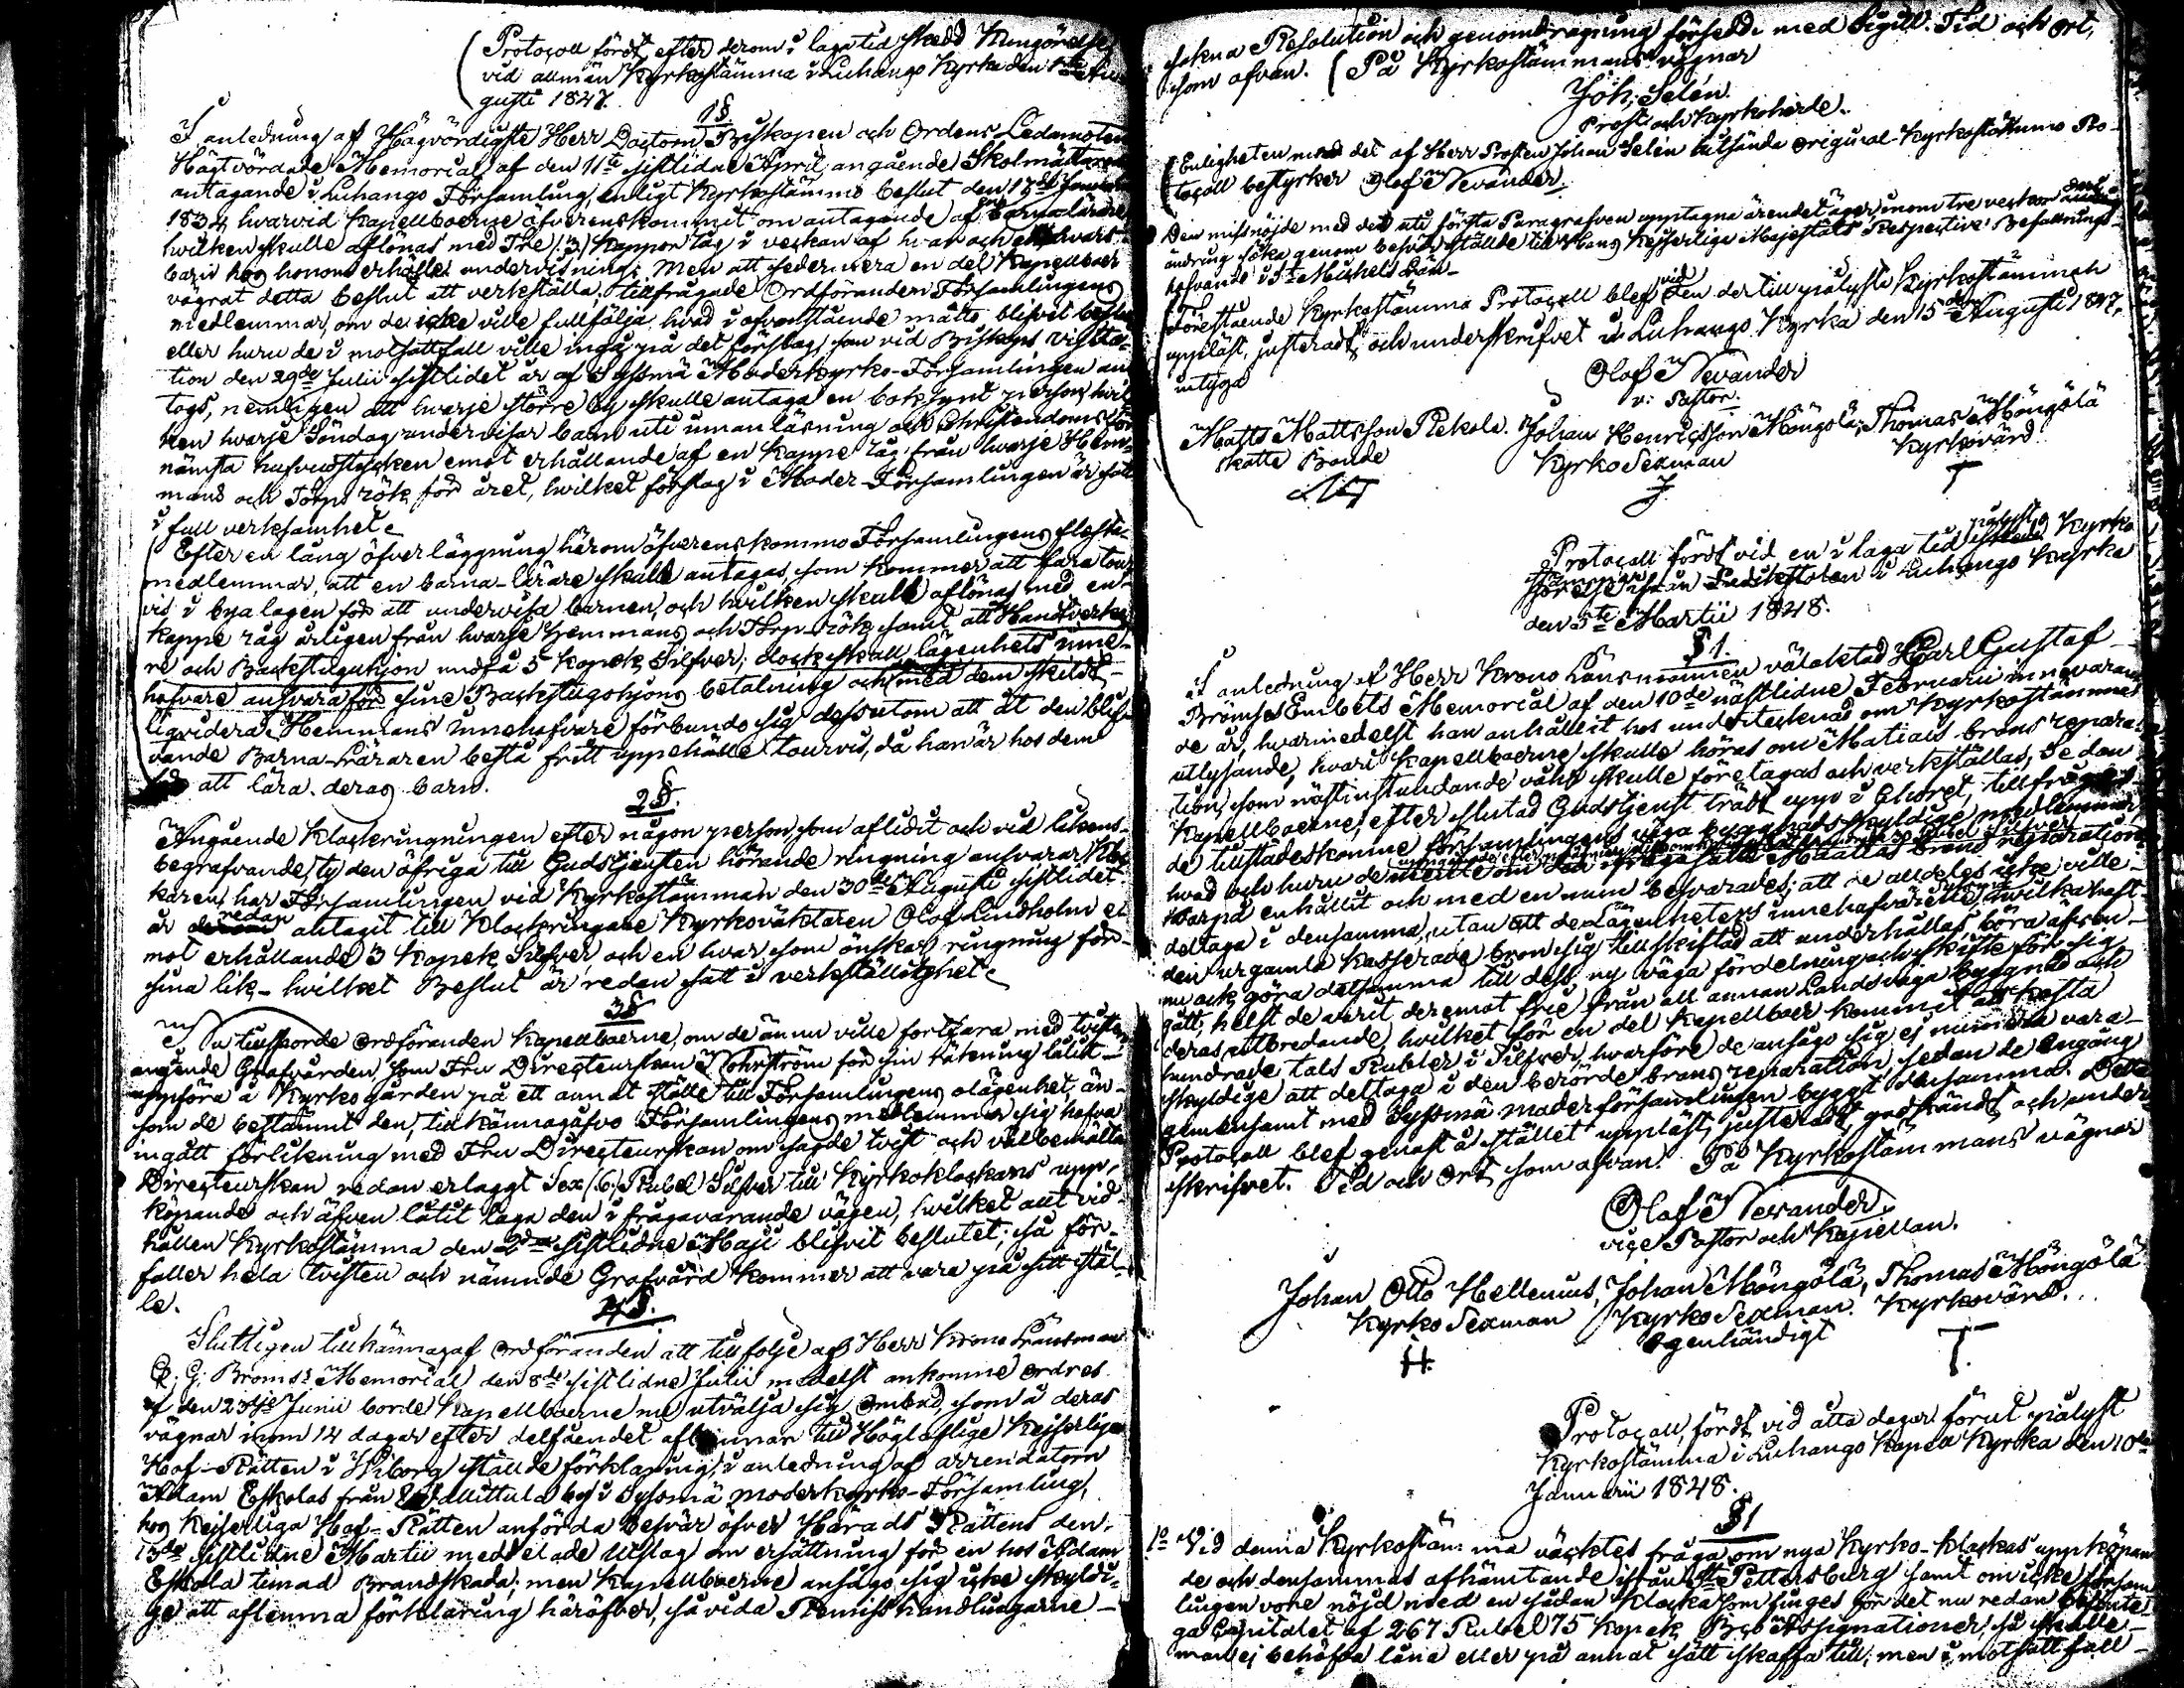 Protocoll fördt, efter derom i laga tid skedd Kungörelse,
vid allmän Kyrkostämma i Luhango Kyrka den 1ste Au-
gusti 1847.
1§.
I anledning af Högvördigste Herr Doctorn Biskopen och Ordens Ledamoten
Högtvördande Memorial af den 11te sistlidne April, angående Skolmästares
antagande i Luhango Församling, enligt Kyrkostämmo beslut den 17de
1834 hvarvid Kapellboerne öfverenskommit om antagande af en barnalärare
hvilken skulle aflönas med Tre (3) Kappor råg i veckan af hvar och en hvars
barn hos honom erhölle undervisning; men att sedermera en del Kapellboer
vägrat detta beslut att verkställa; tillfrågade Ordföranden Församlingens
medlemmar, om de icke ville fullfölja hvad i ofvanstående måtto blifvit beslutet
eller huru de i motsattfall ville ingå på det förslag, som vid Biskops visita-
tion den 29de Julii sistlidet år af Sysmä Moderkyrko-Församlingen an-
togs, nemligen att hvarje större by skulle antaga en bokkynt person, hvil-
ken hvarje Söndag undervisar barn uti innanläsning och Christendoms för-
nämsta hufvudstycken emot erhållande af en Kappe råg från hvarje Hem-
mans och Torps rök för året, hvilket förslag i Moder-Församlingen är satt
i full verksamhet.
Efter en lång öfverläggning härom öfverenskommo Församlingens flesta
medlemmar, att en barna-lärare skulle antagas, som kommer att fara tour
vis i byalagen för att undervisa barnen, och hvilken skulle aflönas med en
kappe råg årligen från hvarje Hemmans och Torp-rök samt att Handtverka-
re och Backstuguhjon undfå 5 Kopek Silfver; dock skall lägenhets inne-
hafvare ansvara för sine Backstuguhjons betalning och med dem skildt
liqvidera. Hemmans Innehafvare förbundo sig dessutom att åt den blif-
vande Barna-Läraren bestå fritt uppehälle tourvis, då han är hos dem
för att lära deras barn.
2§.
Angående Klockringningen efter någon person, som aflidit och vid likens
begrafvande, ty den öfriga till Gudstjensten hörande ringning ansvarar Kloc-
karen, har Församlingen vid Kyrkostämman den 30de Augusti sistlidet
år redan antagit till Klockringare Kyrkoväktaren Olof Lindholm e-
mot erhållande 3 Kopek Silfver, och en hvar som önskar ringning för
sina lik - hvilket Beslut är redan satt i verkställighet.
3§
Nu tillsporde ordföranden Kapellboerne, om de ännu ville fortfara med tvisten
angående Grafvården, som Fru Directeurskan Nohrström för sin räkning låtit
uppföra å Kyrkogården på ett annat ställe till Församlingens olägenhet, än
som de bestämmt den, tillkännagåfvo Församlingens medlemmar sig hafva
ingått förlikning med Fru Directeurskan om sagde tvist och välbemälta
Directeurskan redan erlaggt Sex (6) Rubel Silfver till Kyrkoklockans upp-
köpande och äfven låtit laga den i frågavarande vägen, hvilket allt vid
hållen Kyrkostämma den 2dra sistlidne Maji blifvit beslutet; så för-
faller hela tvisten och nämnde Grafvård kommer att vara på sitt stäl-
le.
4§.
Slutligen tillkännagaf ordföranden att till följe af Herr Krono Länsman
C. G. Bröms's Memorial den 8de sistlidne Julii medelst ankomne ordres
af den 23dje Junii borde Kapellboerne nu utvälja sig Ombud, som å deras
vägnar inom 14 dagar efter delfåendet aflämnar till Höglofliga Kejserliga
Hof-Rätten i Wiborg ställde förklaring, i anledning af arrendatorn
Adam Eskolas från Vallittula by i Sysmä moderkyrko-Församling,
hos Kejserliga Hof-Rätten anförda besvär öfver Härads Rättens den
13de sistlidne Martii meddelade Utslag om ersättning för en hos Adam
Eskola timad Brandskada; men Kapellboerne ansågo sig icke skyldi-
ge att aflemna förklaring häröfver, såvida Remiss handlingarne
sakna Resolution och genomdragning försedde med Sigill. Tid och Ort,
som ofvan. På Kyrkostämmans vägnar
Joh: Selén.
Prost och Kyrkoherde.
Enligheten med det af Herr Prosten Johan Selén insände original Kyrkostämmo Pro-
tocoll bestyrker Olof Nevander.
Den missnöjde med det uti första Paragrafven upptagna ärendet äger inom tre veckor
ändring söka genom besvär ställde till Hans Kejserliga Majestäts Respective Befallnings-
hafvande i St Michels Län.
Förestående Kyrkostämma Protocoll blef vid den dertill pålyste Kyrkostämman
uppläst, justeradt och underskrifvet i Luhango Kyrka den 15de Augusti 1847,
intyga
Olof Nevander
v: Pastor.
Matts Mattsson Piekola. Johan Henricsson Möngölä, Thomas Möngölä
Skatte Bonde Kyrko Sexman Kyrkovärd
J T
Protocoll fördt vid en i laga tid pålyst Kyrko
stämma ifrån Predikstolen i Luhango Kyrka
den 5te Martii 1848.
§1.
I anledning af Herr Krono Länsmannen välaktad Carl Gustaf
Bröms's Embets Memorial af den 10de nästlidne Februarii innevaran-
de år, hvarmedelst han anhållit hos undertecknad om Kyrkostämmas
utlysande, hvari Kapellboerne skulle höras om Matiais brons repara-
tion, som nästinstundande vår skulle företagas och verkställas, Sedan
Kapellboerne, efter slutad Gudstjenst trädt upp i Choret, tillfrågades
de tillstädeskomne församlingens väga byggnads skyldige medlemmar,
hvad och huru de mente om den i fråga satte Maattas brons reparation
hvarpå enhällit och med en mun besvarades; att de alldeles icke ville
deltaga i densamma, utan att de Lägenheters innehafvare hvilka haft
den urgamla kasserade bron sig tillskiftad att underhållas, böra äfven
nu ock göra detsamma till dess ny väga fördelning och skifte för sig
gått, helst de varit deremot frie från all annan Landsväga byggnad och
deras utbredande, hvilket för en del Kapellboer kommit att kosta
hundrade tals Rubler i Silfver, hvarföre de ansågo sig ej numera vara
skyldige att deltaga i den berörde brons reparation, sedan de engång
gemensamt med Sysmä moderförsamlingen byggt densamma. Detta
Protocoll blef genast å stället uppläst, justeradt, godkändt och under-
skrifvet. Tid och Ort som ofvan. På Kyrkostämmans vägnar
Olof Nevander.
vice Pastor och Kapellan.
Johan Otto Hellenius, Johan Möngölä, Thomas Möngölä
Kyrko Sexman Kyrko Sexman Kyrkovärd.
H. egenhändigt T.
Protocoll, fördt vid åtta dagar förut pålyst
Kyrkostämma i Luhango Kapell Kyrka den 10de
Januarii 1848.
§1
1o Vid denna Kyrkostämma väcktes fråga om nya Kyrko-Klockas uppköpan-
de och densammas afhämtande ifrån St Pettersburg samt om icke försam-
lingen vore nöjd med en sådan Klocka som finges för det nu redan
ga Capitalet af 267 Rubel 75 Kopek Bco Assignationer, så skulle
man ej behöfva låna eller på annat sätt skaffa till; men i motsatt fall